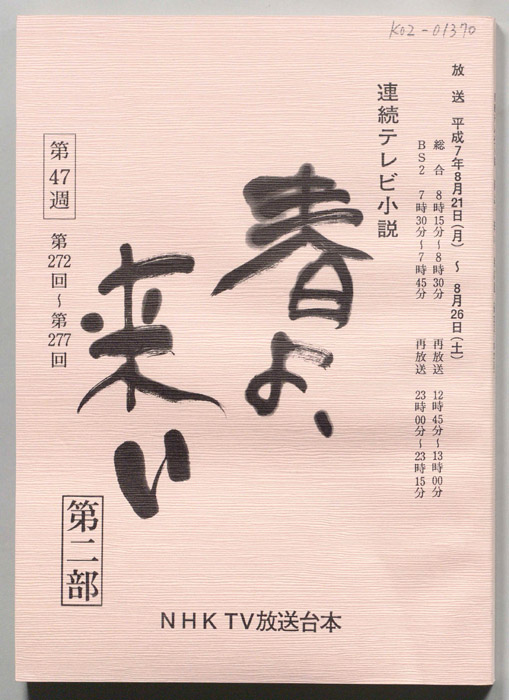 K02-01370
放送 平成7年8月21日(月)～8月26日(土)
総合 8時15分～8時30分 再放送 12時45分～13時00分
BS2 7時30分～7時45分 再放送 23時00分～23時15分
連続テレビ小説
春よ、
来い
第47週
第272回～第277回
第二部
NHK TV放送台本